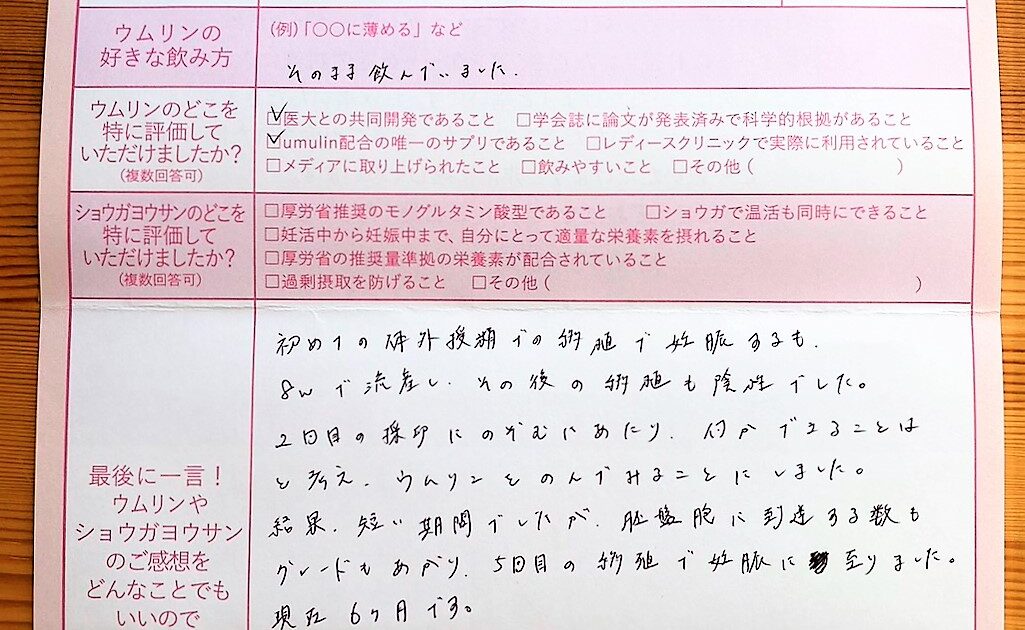 ウムリンの
好きな飲み方
(例)「○○に薄める」など
そのまま飲んでいました.
ウムリンのどこを
特に評価して
いただけましたか?
(複数回答可)
☑医大との共同開発であること □学会誌に論文が発表済みで科学的根拠があること
☑umulin配合の唯一のサプリであること □レディースクリニックで実際に利用されていること
□メディアに取り上げられたこと □飲みやすいこと □その他( )
ショウガヨウサンのどこを
特に評価して
いただけましたか?
(複数回答可)
□厚労省推奨のモノグルタミン酸型であること □ショウガで温活も同時にできること
□妊活中から妊娠中まで、自分にとって適量な栄養素を摂れること
□厚労省の推奨量準拠の栄養素が配合されていること
□過剰摂取を防げること □その他( )
最後に一言!
ウムリンや
ショウガヨウサン
のご感想を
どんなことでも
いいので
初めての体外授精での移植で妊娠するも、
8wで流産し、その後の移植も陰性でした。
2回目の採卵にのぞむにあたり、何かできることは
と考え、ウムリンをのんでみることにしました。
結果、短い期間でしたが、胚盤胞に到達する数も
グレードもあがり、5回目の移植で妊娠に至りました。
現在6ヶ月です。